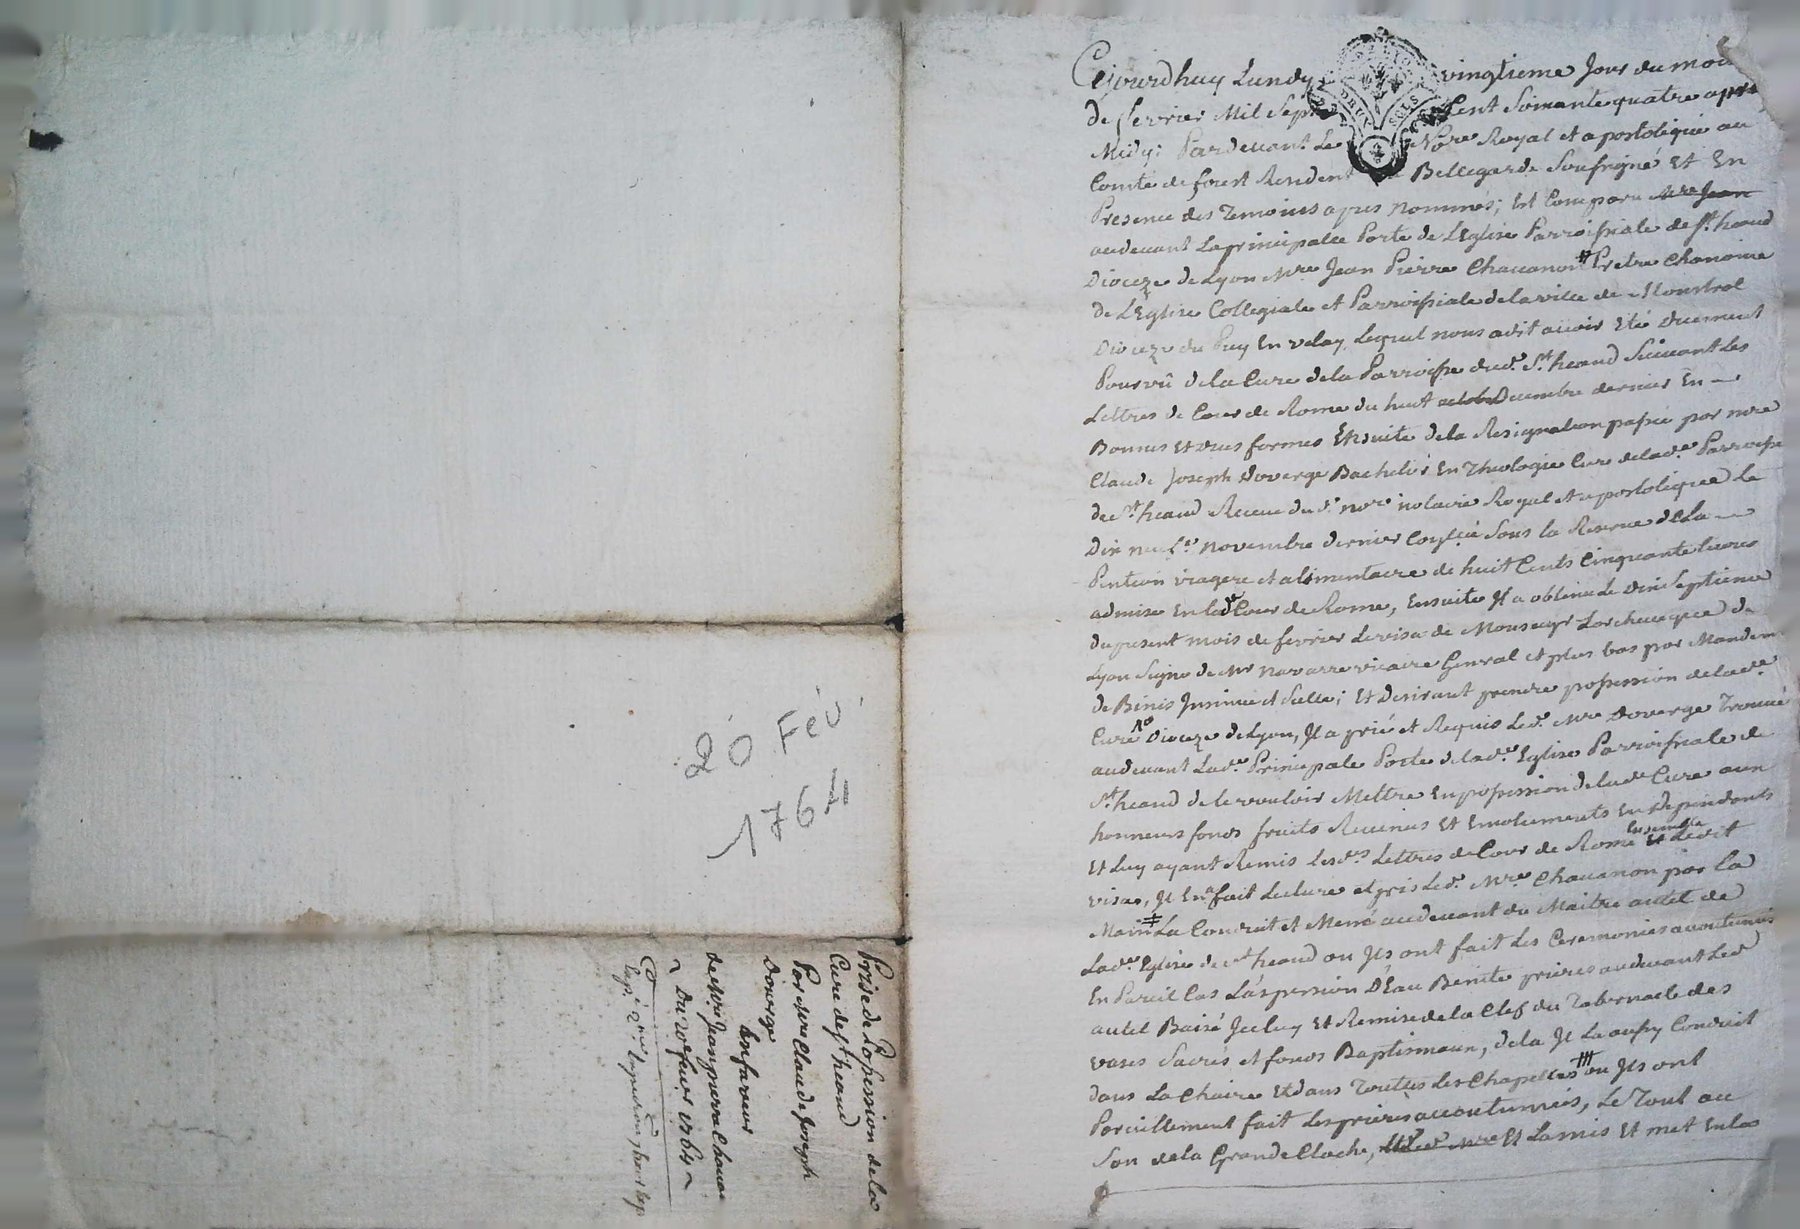 20 Fév.
1764
Prise de Possession de la
Cure de St heand
Par Mre Claude Joseph
Doverge
En faveur
de Mre Jean pierre Chavanon
Du 20e fevrier 1764
Cejourdhuy Lundy vingtieme Jour du mois
de fevrier Mil Sept Cent Soixante quatre apres
Midy; Pardevant Le Nore Royal et apostolique au
Comté de forest Resident a Bellegarde Soussigné Et En
Presence des Temoins apres nommés; Est Comparu Mre Jean
audevant La principalle Porte de LEglise Parroissiale de St heand
Dioceze de Lyon Mre Jean Pierre Chavanon # Pretre Chanoine
de LEglise Collegiale et Parroissiale de la ville de Monstrol
Dioceze du Puy En velay, Lequel nous a dit avoir Eté Duement
Pourvû de la Cure de la Parroisse dud. St heand Suivant Les
Lettres de Cour de Rome du huit octobre Decembre dernier En
Bonnes Et dues formes Ensuite de la Resignation passée par Mre
Claude Joseph Doverge Bachelier En Theologie Cure de lade Parroisse
de St heand Receue du d. nore notaire Royal et apostolique Le
Dix neuf novembre dernier Sous la Reserve de La
Pention viagere et alimentaire de huit Cents Cinquante livres
admise En lade Cour de Rome, Ensuite Il a obtenu Le Dix Septieme
du present mois de fevrier Le visa de Monseigr Larcheveque de
Lyon Signé de Mr Navarre vicaire General et plus bas par Mandemt
de Binis Insinué et Scellé; Et desirant prendre possession de lade
Cure Dioceze de Lyon, Il a prié et Requis Led. Mre Doverge Trouvé
audevant Lade Principale Porte de lade Eglise Parroissiale de
St heand de le vouloir Mettre En possession de lade Cure aux
honneurs fonds fruits Revenus Et Emoluments En dependants
Et Luy ayant Remis Lesdes Lettres de Cour de Rome Ensemble Et Ledit
visa, Il En a fait Lecture et pris Led. Mre Chavanon par La
Main # La Conduit et Mené audevant du Maitre autel de
Lade Eglise de St heand ou Ils ont fait Les Ceremonies accoutumées
En Pareil Cas Laspersion DEau Benite prieres audevant Led
autel Baisé Iceluy Et Remise de la Clef du Tabernacle des
vases Sacrés et fonds Baptismaux, de la Il La aussy Conduit
dans La Chaire Et dans Toutes Les Chapelles ou Ils ont
Pareillement fait Les prieres accoutumées, Le Tout au
Son de la Grande Cloche, Et Led Mre Et La mis Et met En la